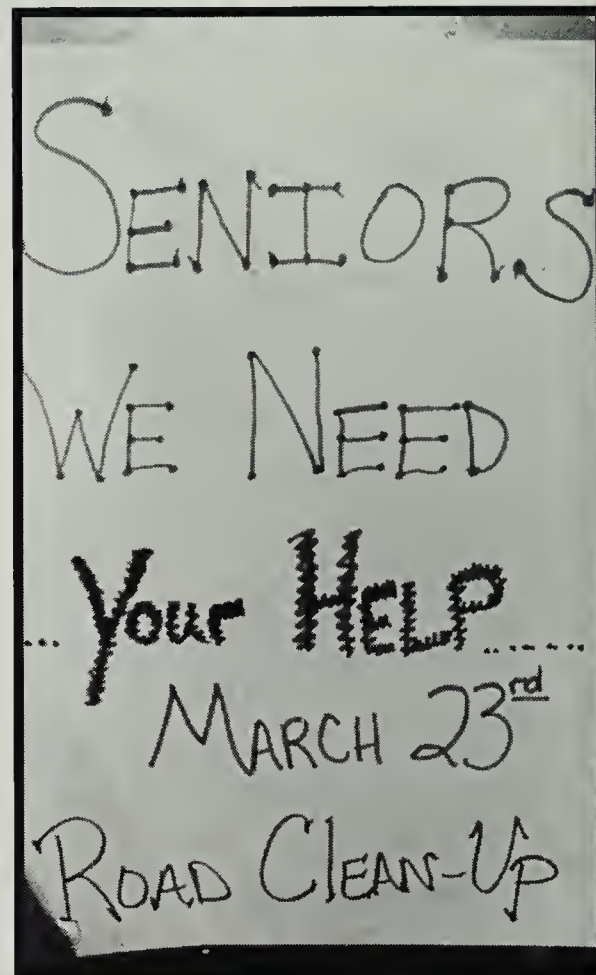 SENIORS
WE NEED
...Your HELP......
MARCH 23rd
ROAD CLEAN-UP